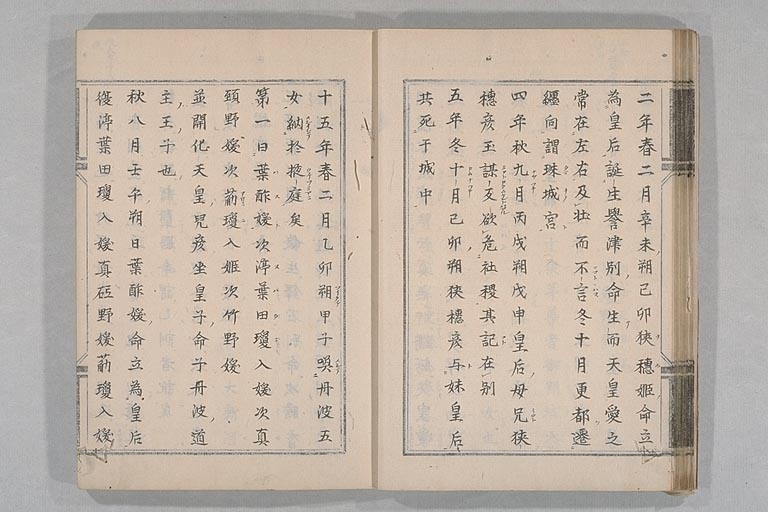 二年春二月辛未朔己卯狹穗姬命立
為皇后誕生譽津別命生而天皇愛之
常在左右及壮而不言冬十月更都遷
纏向謂珠城宮
四年秋九月丙戌朔戊申皇后母兄狹
穗彦王謀反欲危社稷其記在別
五年冬十月己卯朔狹穗彦与妹皇后
共死于城中
十五年春二月乙卯朔甲子喚丹波五
女納於掖庭矣
第一曰葉酢媛次渟葉田瓊入媛次真
頚野媛次薊瓊入姬次竹野媛
並開化天皇兒彦坐皇子命子丹波道
主王子也
秋八月壬午朔日葉酢媛命立為皇后
復渟葉田瓊入媛真砥野媛薊瓊入媛